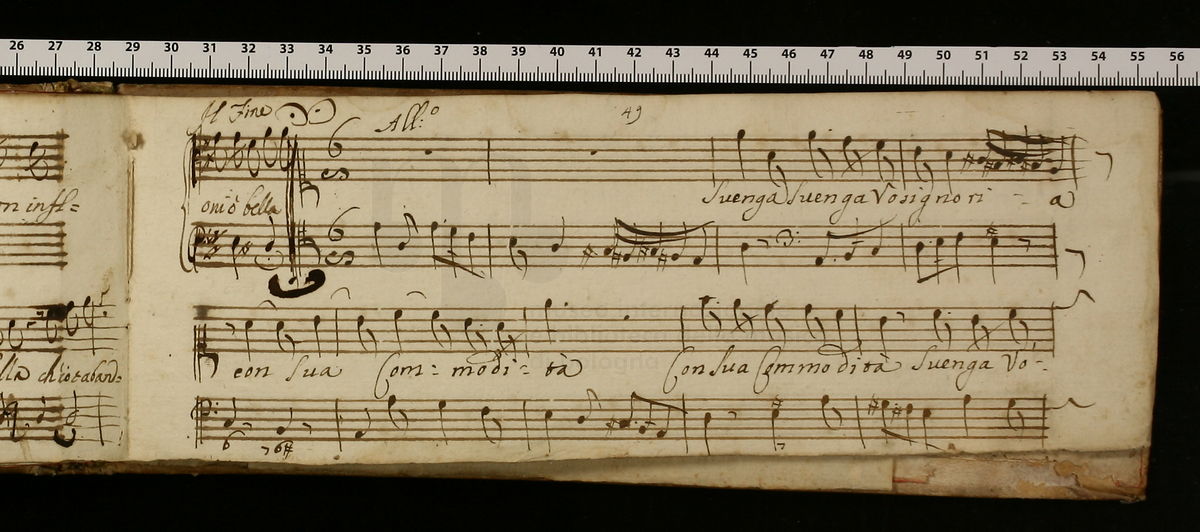 26 27 28 29 30 31 32 33 34 35 36 37 38 39 40 41 42 43 44 45 46 47 48 49 50 51 52 53 54 55 56
Il Fine
All:o
49
oniò bella
Suenga Suenga Vosignori - a
con Sua Com= modi= tà Con Sua Commodità Suenga Vo=
6 6#